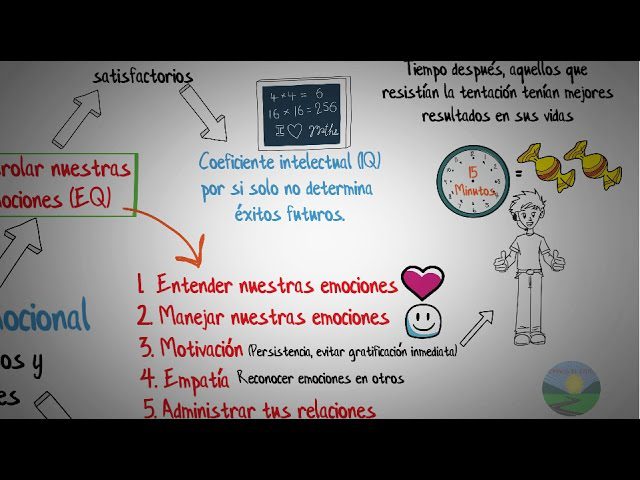 satisfactorios
4 × 4 = 6
16 × 16 = 256
I ♡ Maths
Tiempo después, aquellos que
resistían la tentación tenían mejores
resultados en sus vidas
rolar nuestras
ociones (EQ)
Coeficiente intelectual (IQ)
por si solo no determina
éxitos futuros.
15
Minutos
=
1. Entender nuestras emociones
2. Manejar nuestras emociones
3. Motivación (Persistencia, evitar gratificación inmediata)
4. Empatía Reconocer emociones en otros
5. Administrar tus relaciones
mocional
os y
es